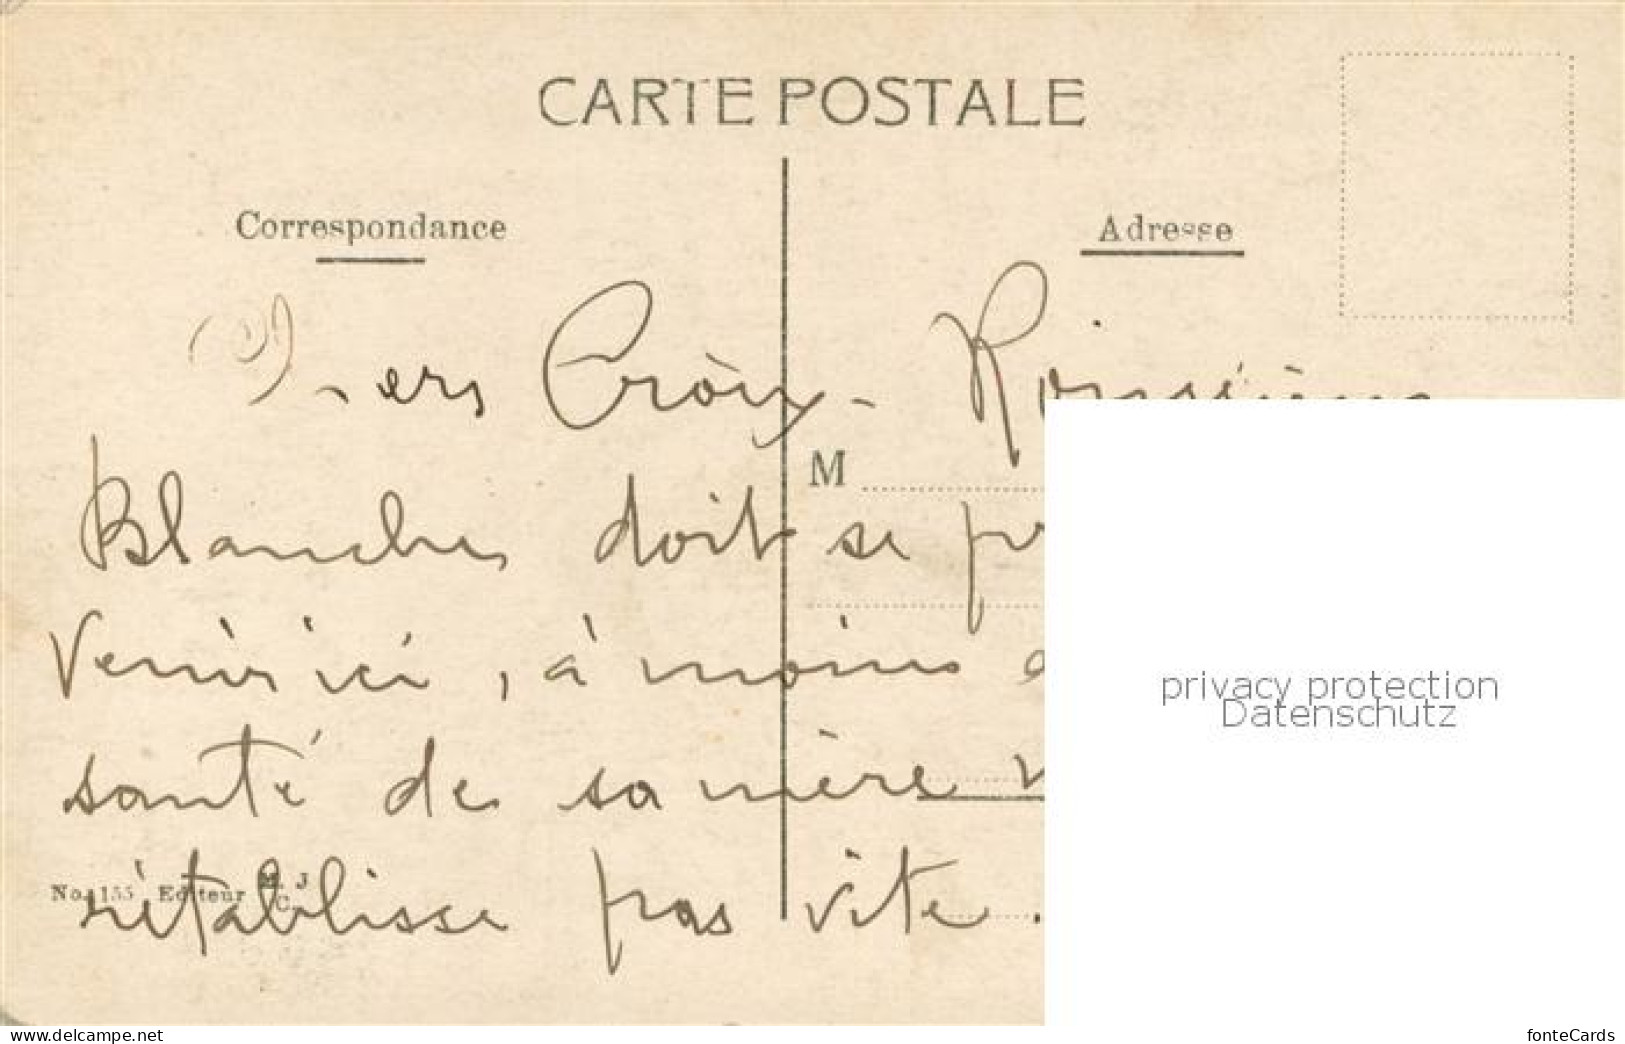 CARTE POSTALE
Correspondance
Adresse
Croix-
Blanches doit se
M
venir ici, à moins
santé de sa mère
rétablisse pas vite.
No. 155 Editeur M. J. C.
privacy protection
Datenschutz
www.delcampe.net
fonteCards